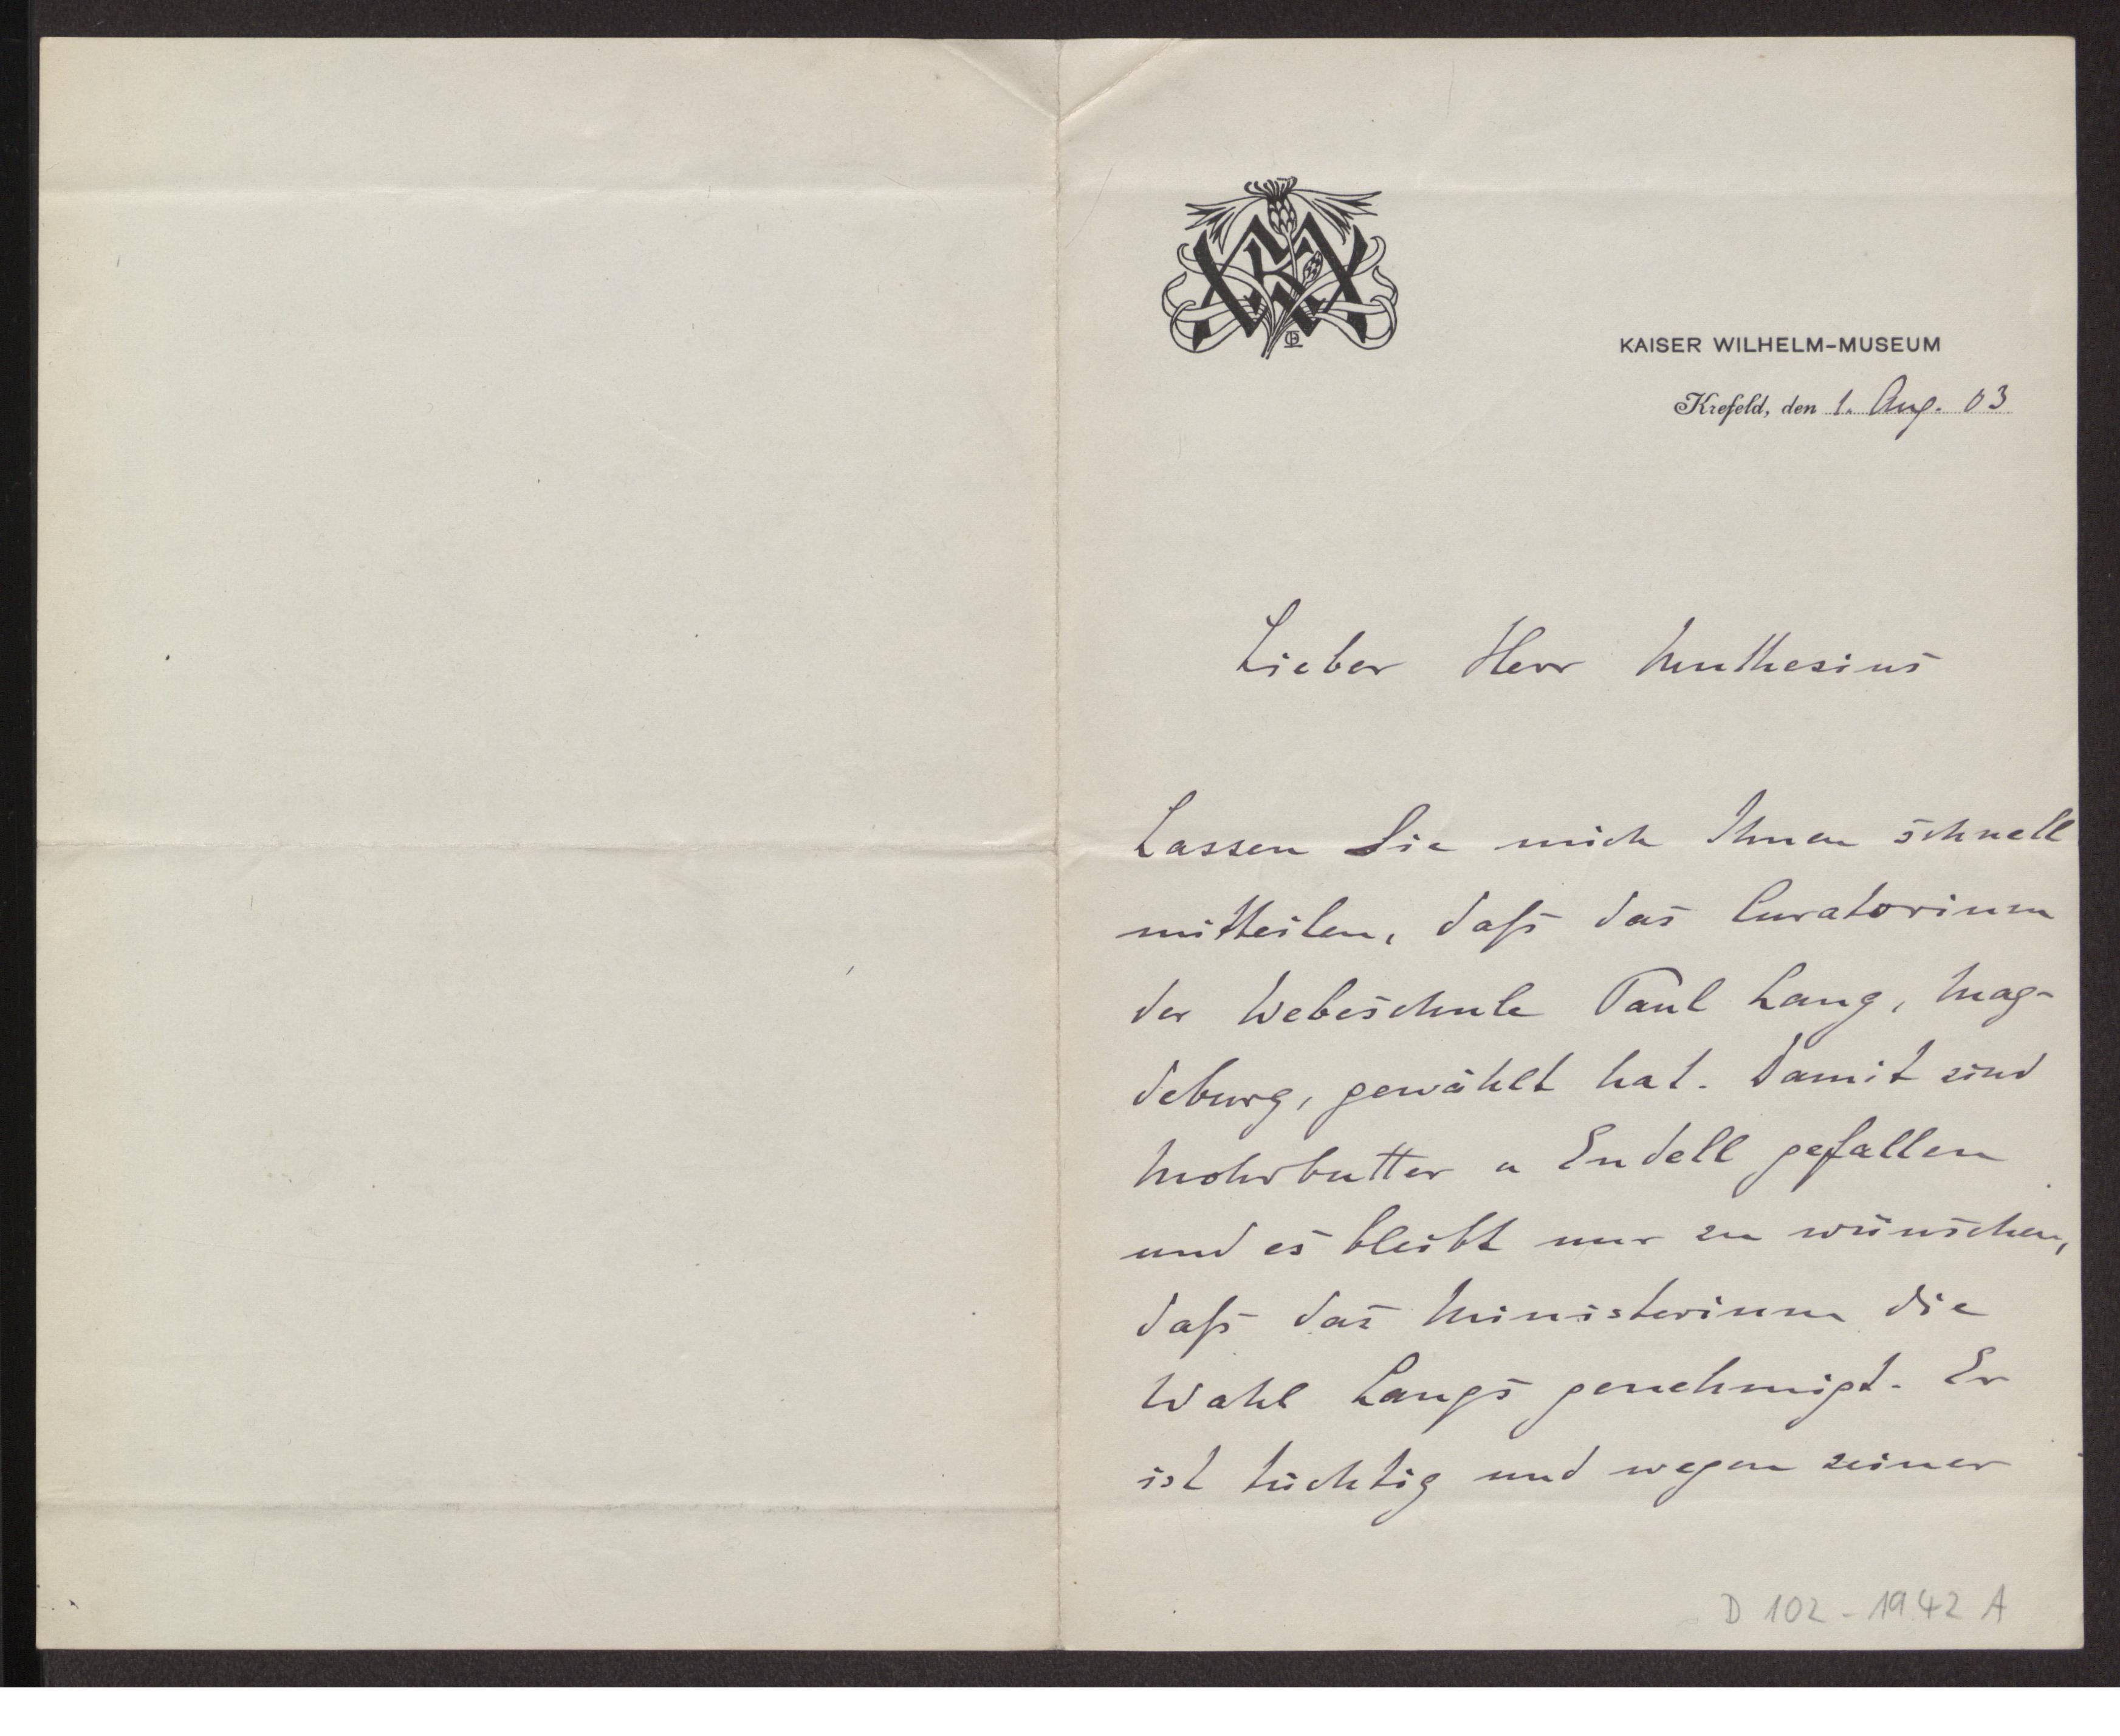 KAISER WILHELM-MUSEUM
Krefeld, den 1. Aug. 03
Lieber Herr Muthesius
Lassen Sie mich Ihnen schnell
mitteilen, daß das Curatorium
der Webeschule Paul Lang, Mag-
deburg, gewählt hat. Damit sind
Mohrbutter u Endell gefallen
und es bleibt nur zu wünschen,
daß das Ministerium die
Wahl Langs genehmigt. Er
ist tüchtig und wegen seiner
D 102 - 1942 A